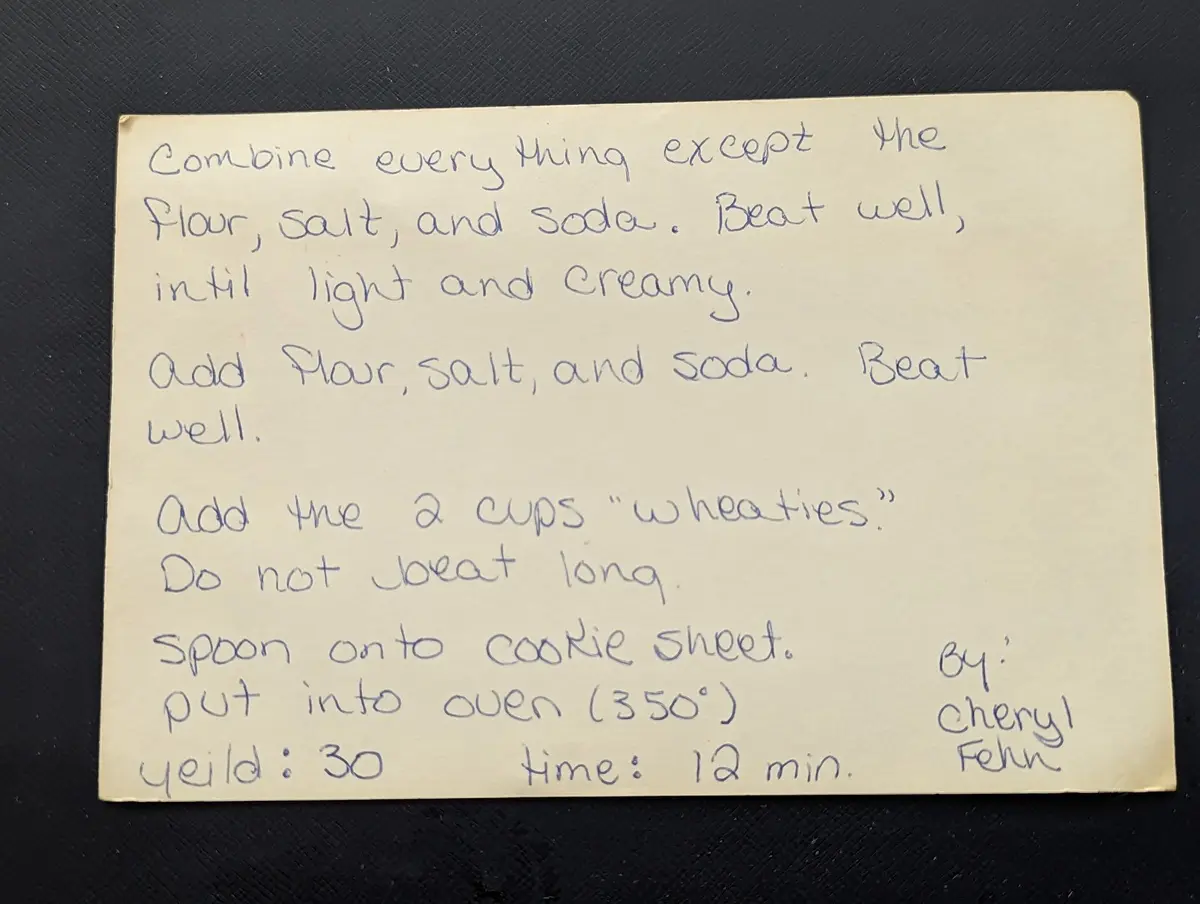 Combine every thing except the
flour, salt, and soda. Beat well,
intil light and creamy.
Add flour, salt, and soda. Beat
well.
Add the 2 cups "wheaties."
Do not beat long.
spoon onto cookie sheet.
put into oven (350°)
By:
Cheryl
Fehn
yeild: 30 time: 12 min.